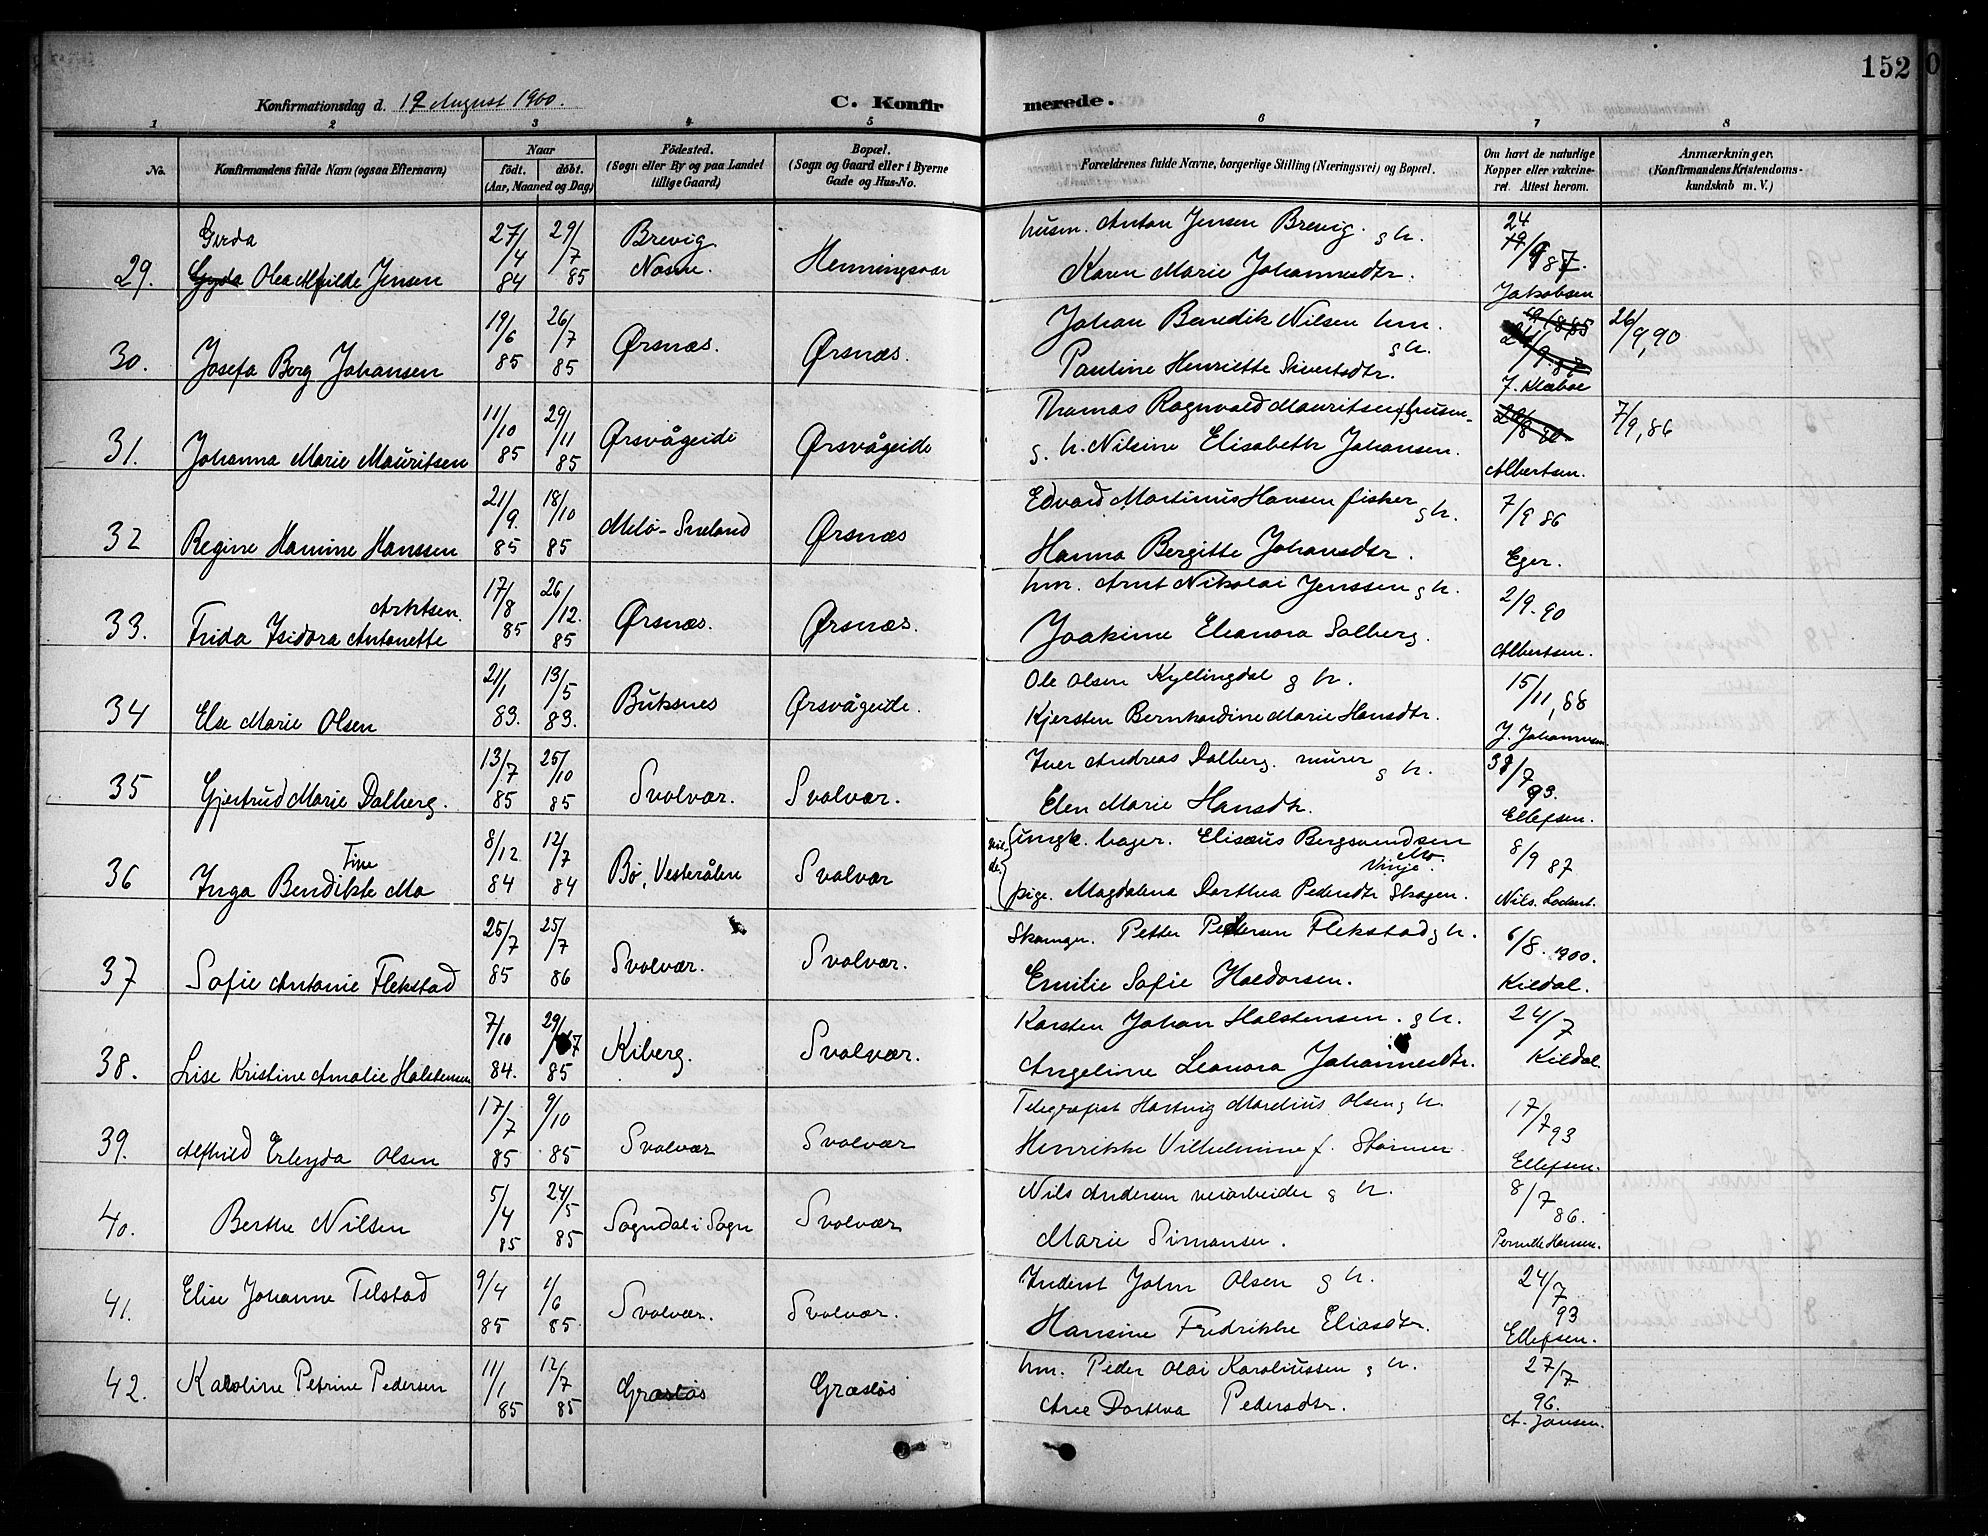 152
Konfirmationsdag d. 12 August 1900. C. Konfirmerede.
1 2 3 4 5 6 7 8
No. Konfirmandens fulde Navn (ogsaa Efternavn) Naar födt. döbt. (Aar, Maaned og Dag) Födested. (Sogn eller By og paa Landet tillige Gaard) Bopæl. (Sogn og Gaard eller i Byerne Gade og Hus-No. Forældrenes fulde Navne, borgerlige Stilling (Næringsvei) og Bopæl. Om havt de naturlige Kopper eller vakcineret. Attest herom. Anmærkninger. (Konfirmandens Kristendomskundskab m. V.)
Gerda
29. Gyda Olea Alfhilde Jensen 27/4 84 29/7 85 Brevig Henningsvær husm. Anton Jensen Brevig. g h. 24/9 87.
Karen Marie Johannesdtr. Jakobsen
30. Josefa Borg Johansen 19/6 85 26/7 85 Ørsnæs. Ørsnæs. Johan Benedik Nilsen hm. g h. 26/9, 90
Pauline Henriette Sivertsdtr. J. Klæboe
31. Johanna Marie Mauritsen 11/10 85 29/11 85 Ørsvågeide Ørsvågeide Thomas Ragnvald Mauritsen husm. 7/9, 86
g. h. Nilsine Elisabeth Johansen. Albertsen.
32 Regine Hanssen 21/9. 85 18/10 85 Ørsnæs Edvard Martinus Hansen fisker g h. 7/9 86
Hanna Bergitte Johansdtr. Eger.
33. Frida Isidora Antonette Arntsen. 17/8 85 26/12. 85 Ørsnæs. Ørsnæs. hm. Arnt Nikolai Jenssen g h. 2/9. 90
Joakime Eleanora Solberg. Albertsen.
34 Else Marie Olsen 21/1 83. 13/5 83. Buksnes Ørsvågeide. Ole Olsen Kyllingdal g h. 15/11, 88
Kjersten Bernhardine Marie Hansdtr. J. Johannesen
35 Gjertrud Marie Dalberg. 13/7 85 25/10 85 Svolvær. Svolvær. Iver Andreas Dalberg. murer g h. 7 93.
Elen Marie Hansdtr. Ellefsen.
36 Inga Bendikte Tine Mo 8/12 84 12/7 84 Bø, Vesterålen Svolvær ungk. bager. Elisæus Bergsvendsen Mo. Vinje. 8/9 87
pige. Magdalena Dorthea Pedersdtr Skagen. Nils.
37 Sofie Antonie Flekstad 25/7 85 25/7 86 Svolvær. Svolvær. Petter Pettersen Flekstad g h. 6/8. 1900.
Emilie Sofie Haldorsen. Kildal.
38. Lise Kristine Amalie Halstensen 7/10 84. 29/7 85 Kiberg. Svolvær. Karsten Johan Halstensen. g h. 24/7
Angeline Leonora Johannesdtr. Kildal
39. Alfhild Olsen 17/7 85 9/10 85 Svolvær Svolvær Telegrafist Hartvig Mardius Olsen g h. 17/7 93
Henrikke Vilhelmine f. Størmer. Ellefsen.
40. Berthe Nilsen 5/4 85 24/5 85 Sogndal i Sogn Svolvær Nils Andersen veiarbeider g h. 8/7 86.
Marie Simonsen. Pernille Hansen.
41. Elise Johanne Tilstad 9/4 85 1/6 85. Svolvær. Svolvær. Inderst John Olsen g h. 24/7 93
Hansine Fredrikke Eliasdtr. Ellefsen.
42. Karoline Petrine Pedersen 11/1 85 12/7 85 Græsløs Græsløs hm. Peder Olai Karoliussen g h. 27/7. 96.
Ane Dorthea Pedersdtr. A. Jensen.